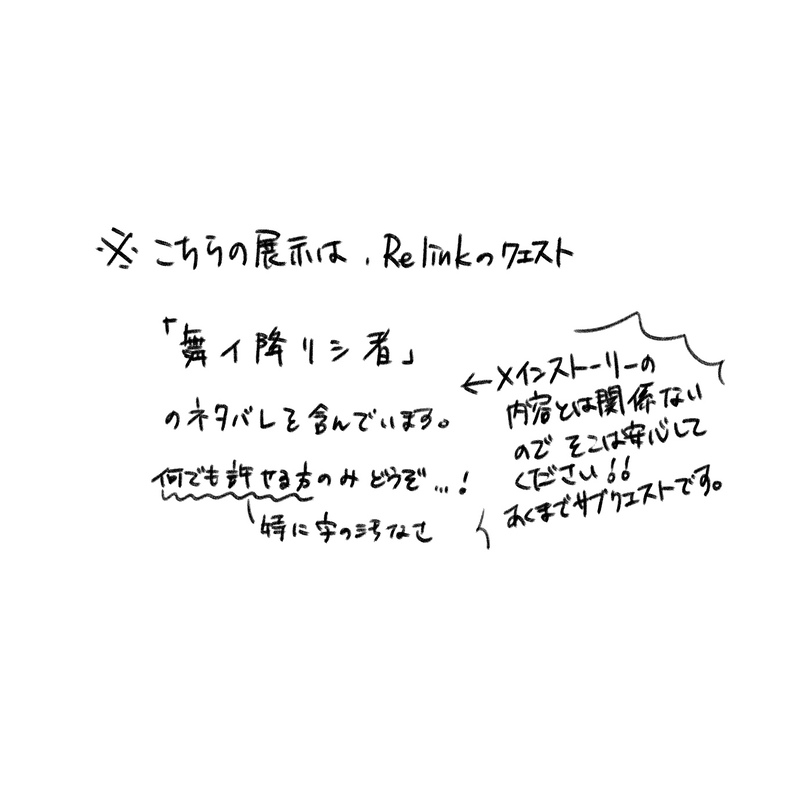 ※こちらの展示は、Relinkのクエスト
「舞イ降リシ者」
のネタバレを含んでいます。
何でも許せる方のみどうぞ…!
特に字の汚なさ
←メインストーリーの
内容とは関係ない
のでそこは安心して
ください!!
あくまでサブクエストです。